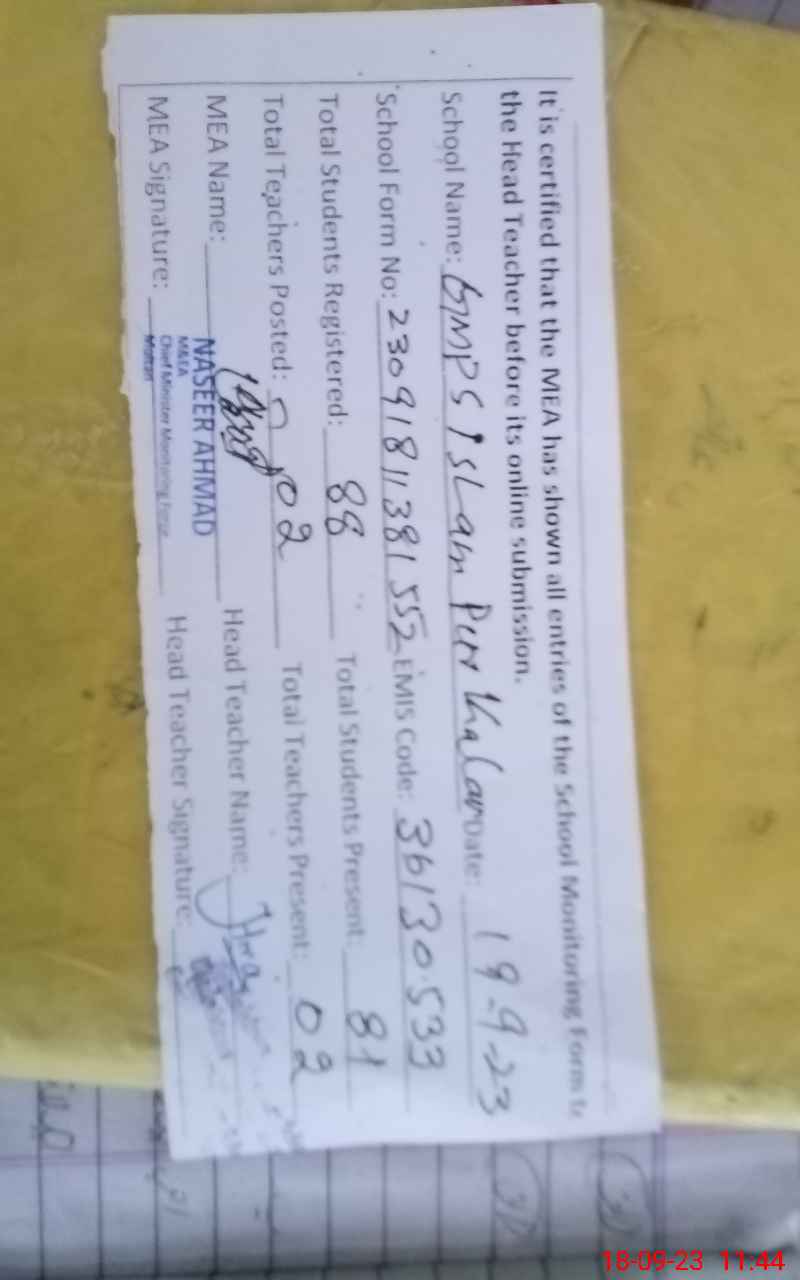 It is certified that the MEA has shown all entries of the School Monitoring Form to
the Head Teacher before its online submission.
School Name: GMPS Islam Pur Kalan Date: 19-9-23
School Form No: 23091811381552 EMIS Code: 36130533
Total Students Registered: 88 Total Students Present: 81
Total Teachers Posted: 02 Total Teachers Present: 02
MEA Name: NASEER AHMAD Head Teacher Name:
M&EA
Chief Minister Monitoring Force
Multan
MEA Signature: Head Teacher Signature:
18-09-23 11:44